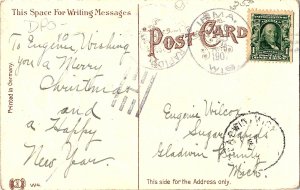 This Space For Writing Messages
DPO-
To Eugenie Wishing
you a Merry
Christmas
and
a Happy
New Year.
Printed in Germany.
POST CARD
IRMA,
190
WIS.
1
Eugenie Wilcox
Sugar Rapids
Gladwin County
Mich.
GLADWIN, MICH.
This side for the Address only.